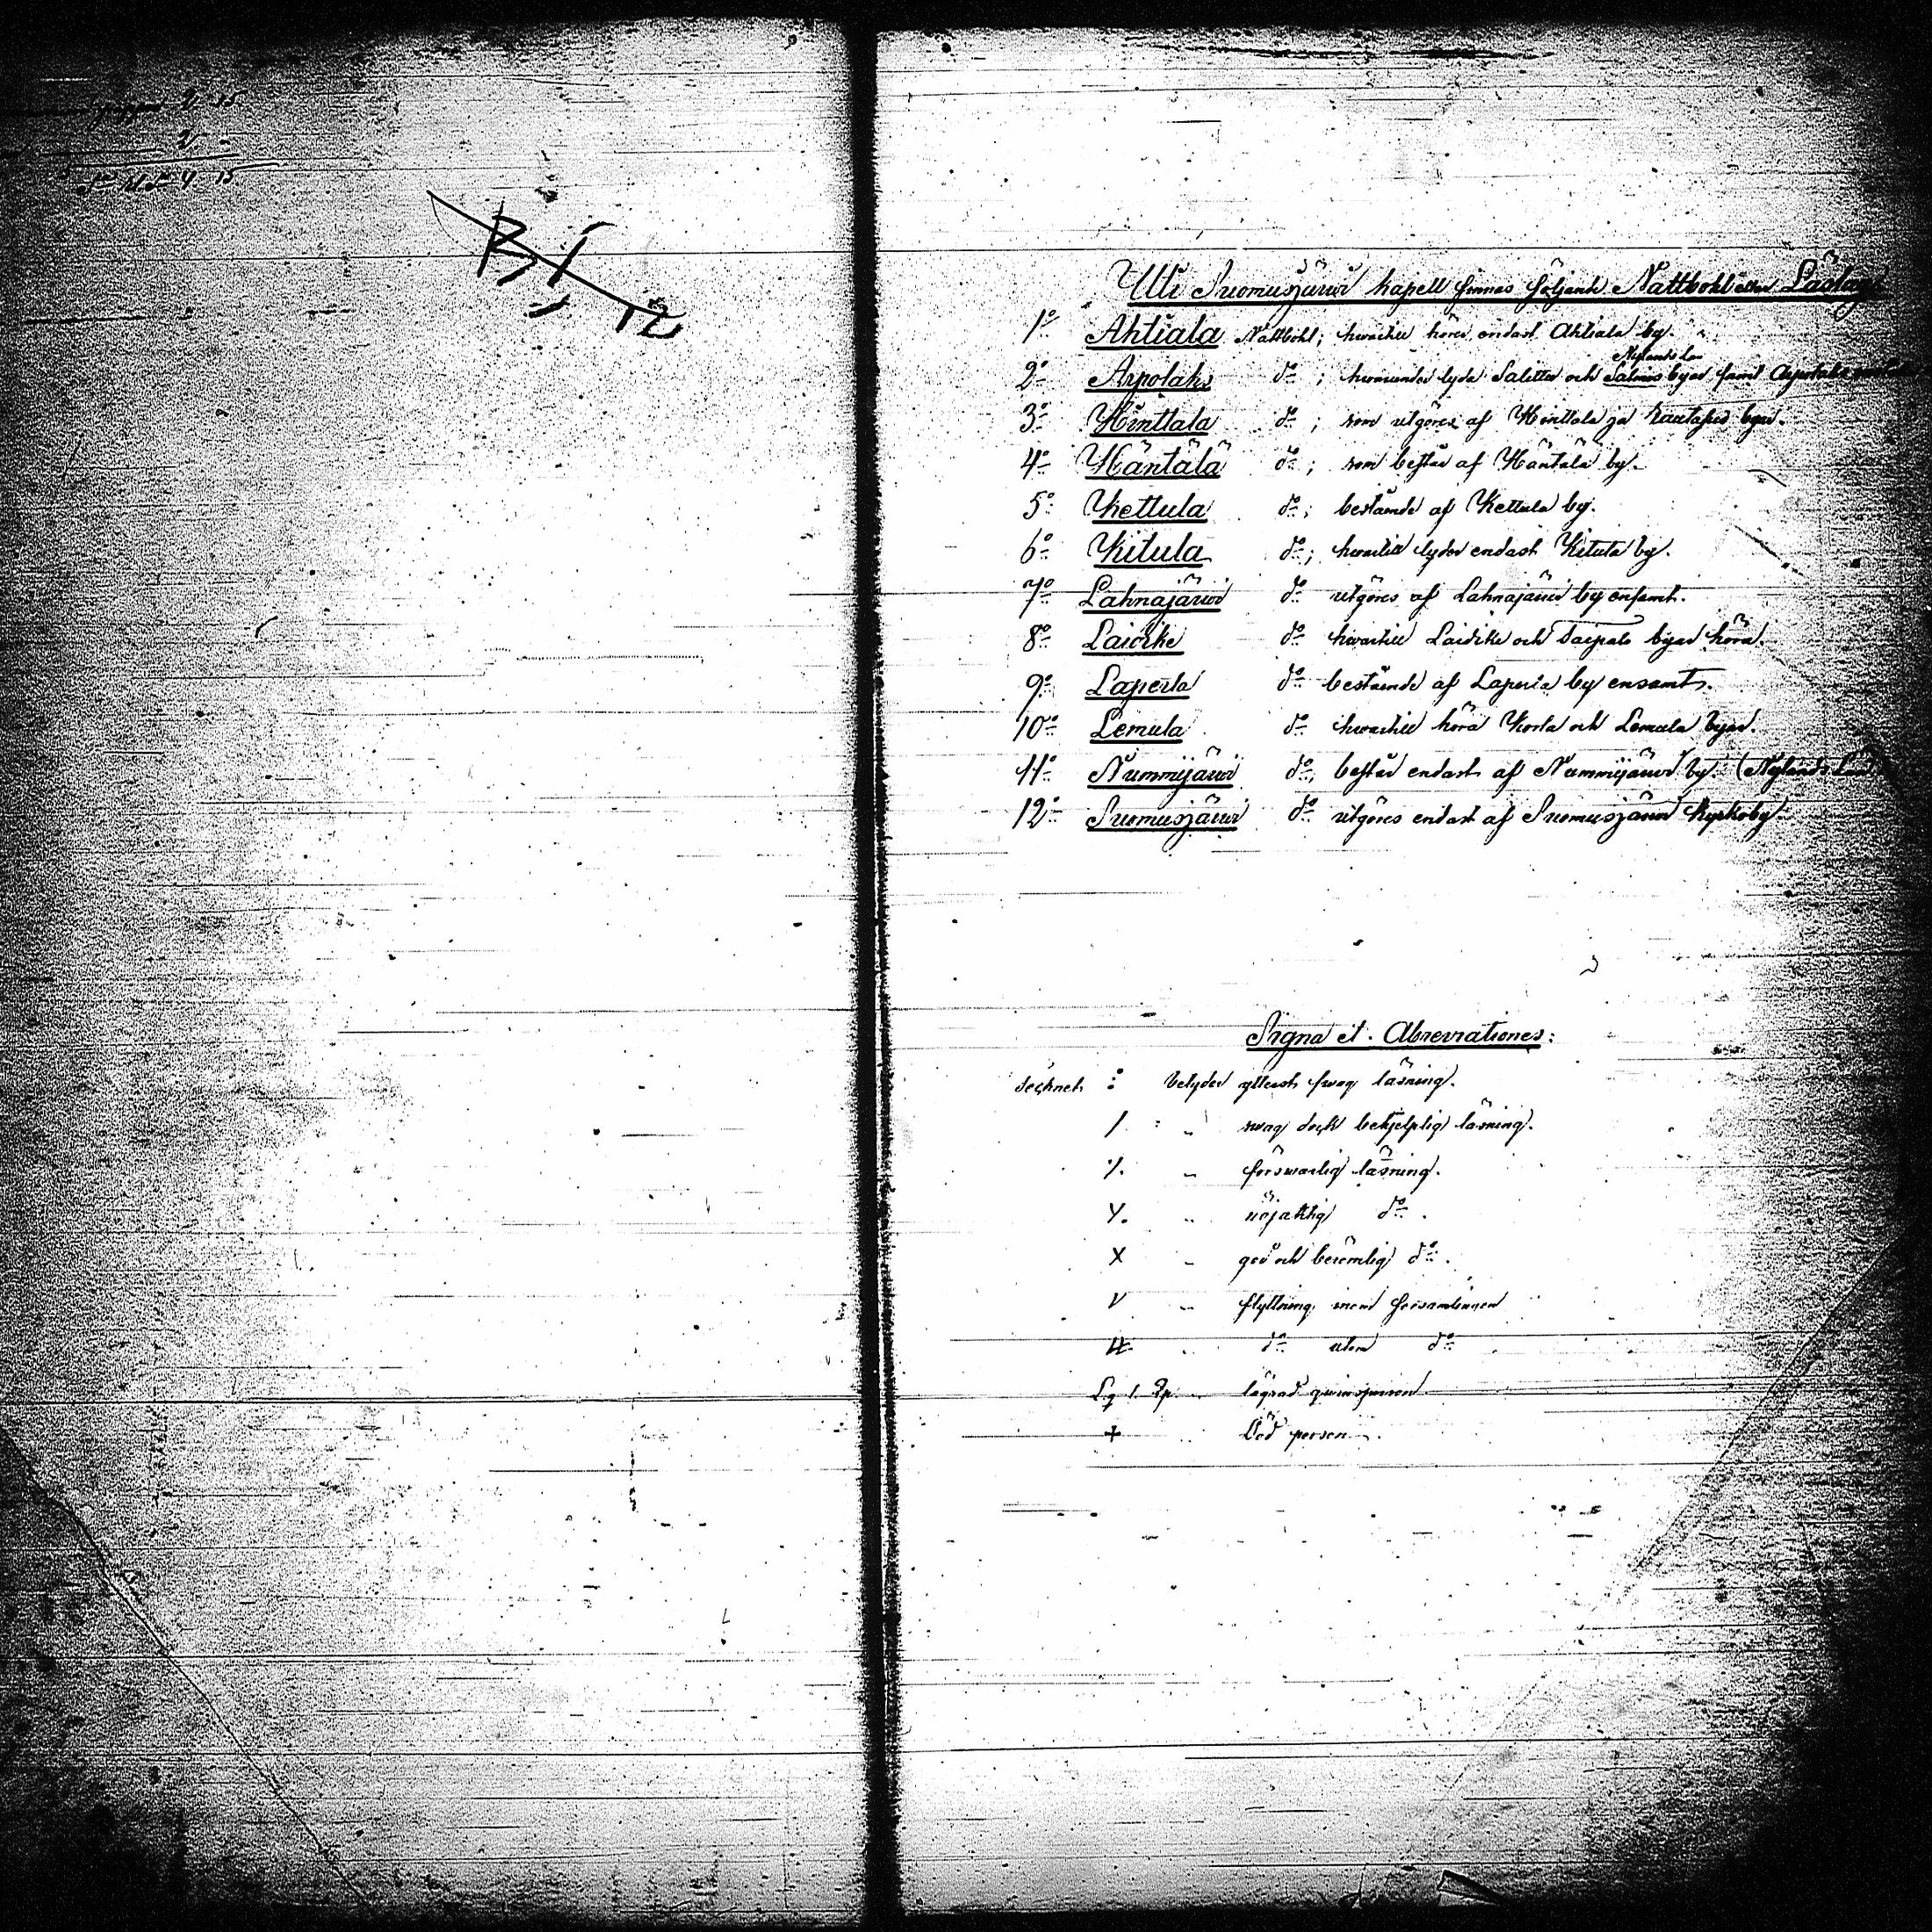 B I
12
Uti Suomusjärwi Kapell finnas följande Nattbohl eller Läslag
1º Ahtiala Nattbohl; hwartill hörer endast Ahtiala by.
Nylands Län
2º Arpolaks dº; hworunder lyda Salitto och Salmis byar samt Arpolaks
3º Hinttala dº; som utgöres af Hinttala ja Rautapio byar.
4º Häntälä dº; som består af Häntälä by.
5º Kettula dº; bestående af Kettula by.
6º Kitula dº; hwartill lyder endast Kitula by.
7º Lahnajärwi dº utgöres af Lahnajärwi by ensamt.
8º Laidike dº hwartill Laidike och Taipale byar höra.
9º Laperla dº bestående af Laperla by ensamt.
10º Lemula dº hwartill höra Korta och Lemula byar.
11º Nummijärwi dº; består endast af Nummijärwi by. (Nylands Län
12º Suomusjärwi dº utgöres endast af Suomusjärwi Kyrkoby.
Signa et Abreviationes:
tecknet : betyder ytterst swag läsning.
/ : „ swag dock behjelplig läsning.
⁒ „ förswarlig läsning.
Y. „ nöjaktig dº.
X „ god och berömlig dº.
V „ flyttning inom församlingen
„ dº utom dº
Lg l. Qp „ lägrad qwinsperson
+ „ Död person.